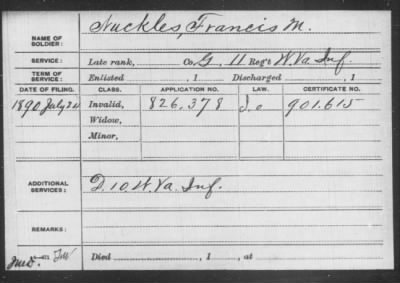 NAME OF SOLDIER: Nuckles, Francis M.
SERVICE: Late rank, Co. G, 11 Reg't W. Va. Inf.
TERM OF SERVICE: Enlisted , 1 Discharged , 1
DATE OF FILING. CLASS. APPLICATION NO. LAW. CERTIFICATE NO.
1890 July 24 Invalid, 826,378 901.615
Widow,
Minor,
ADDITIONAL SERVICES: D. 10 W. Va. Inf.
REMARKS:
Died , 1 , at